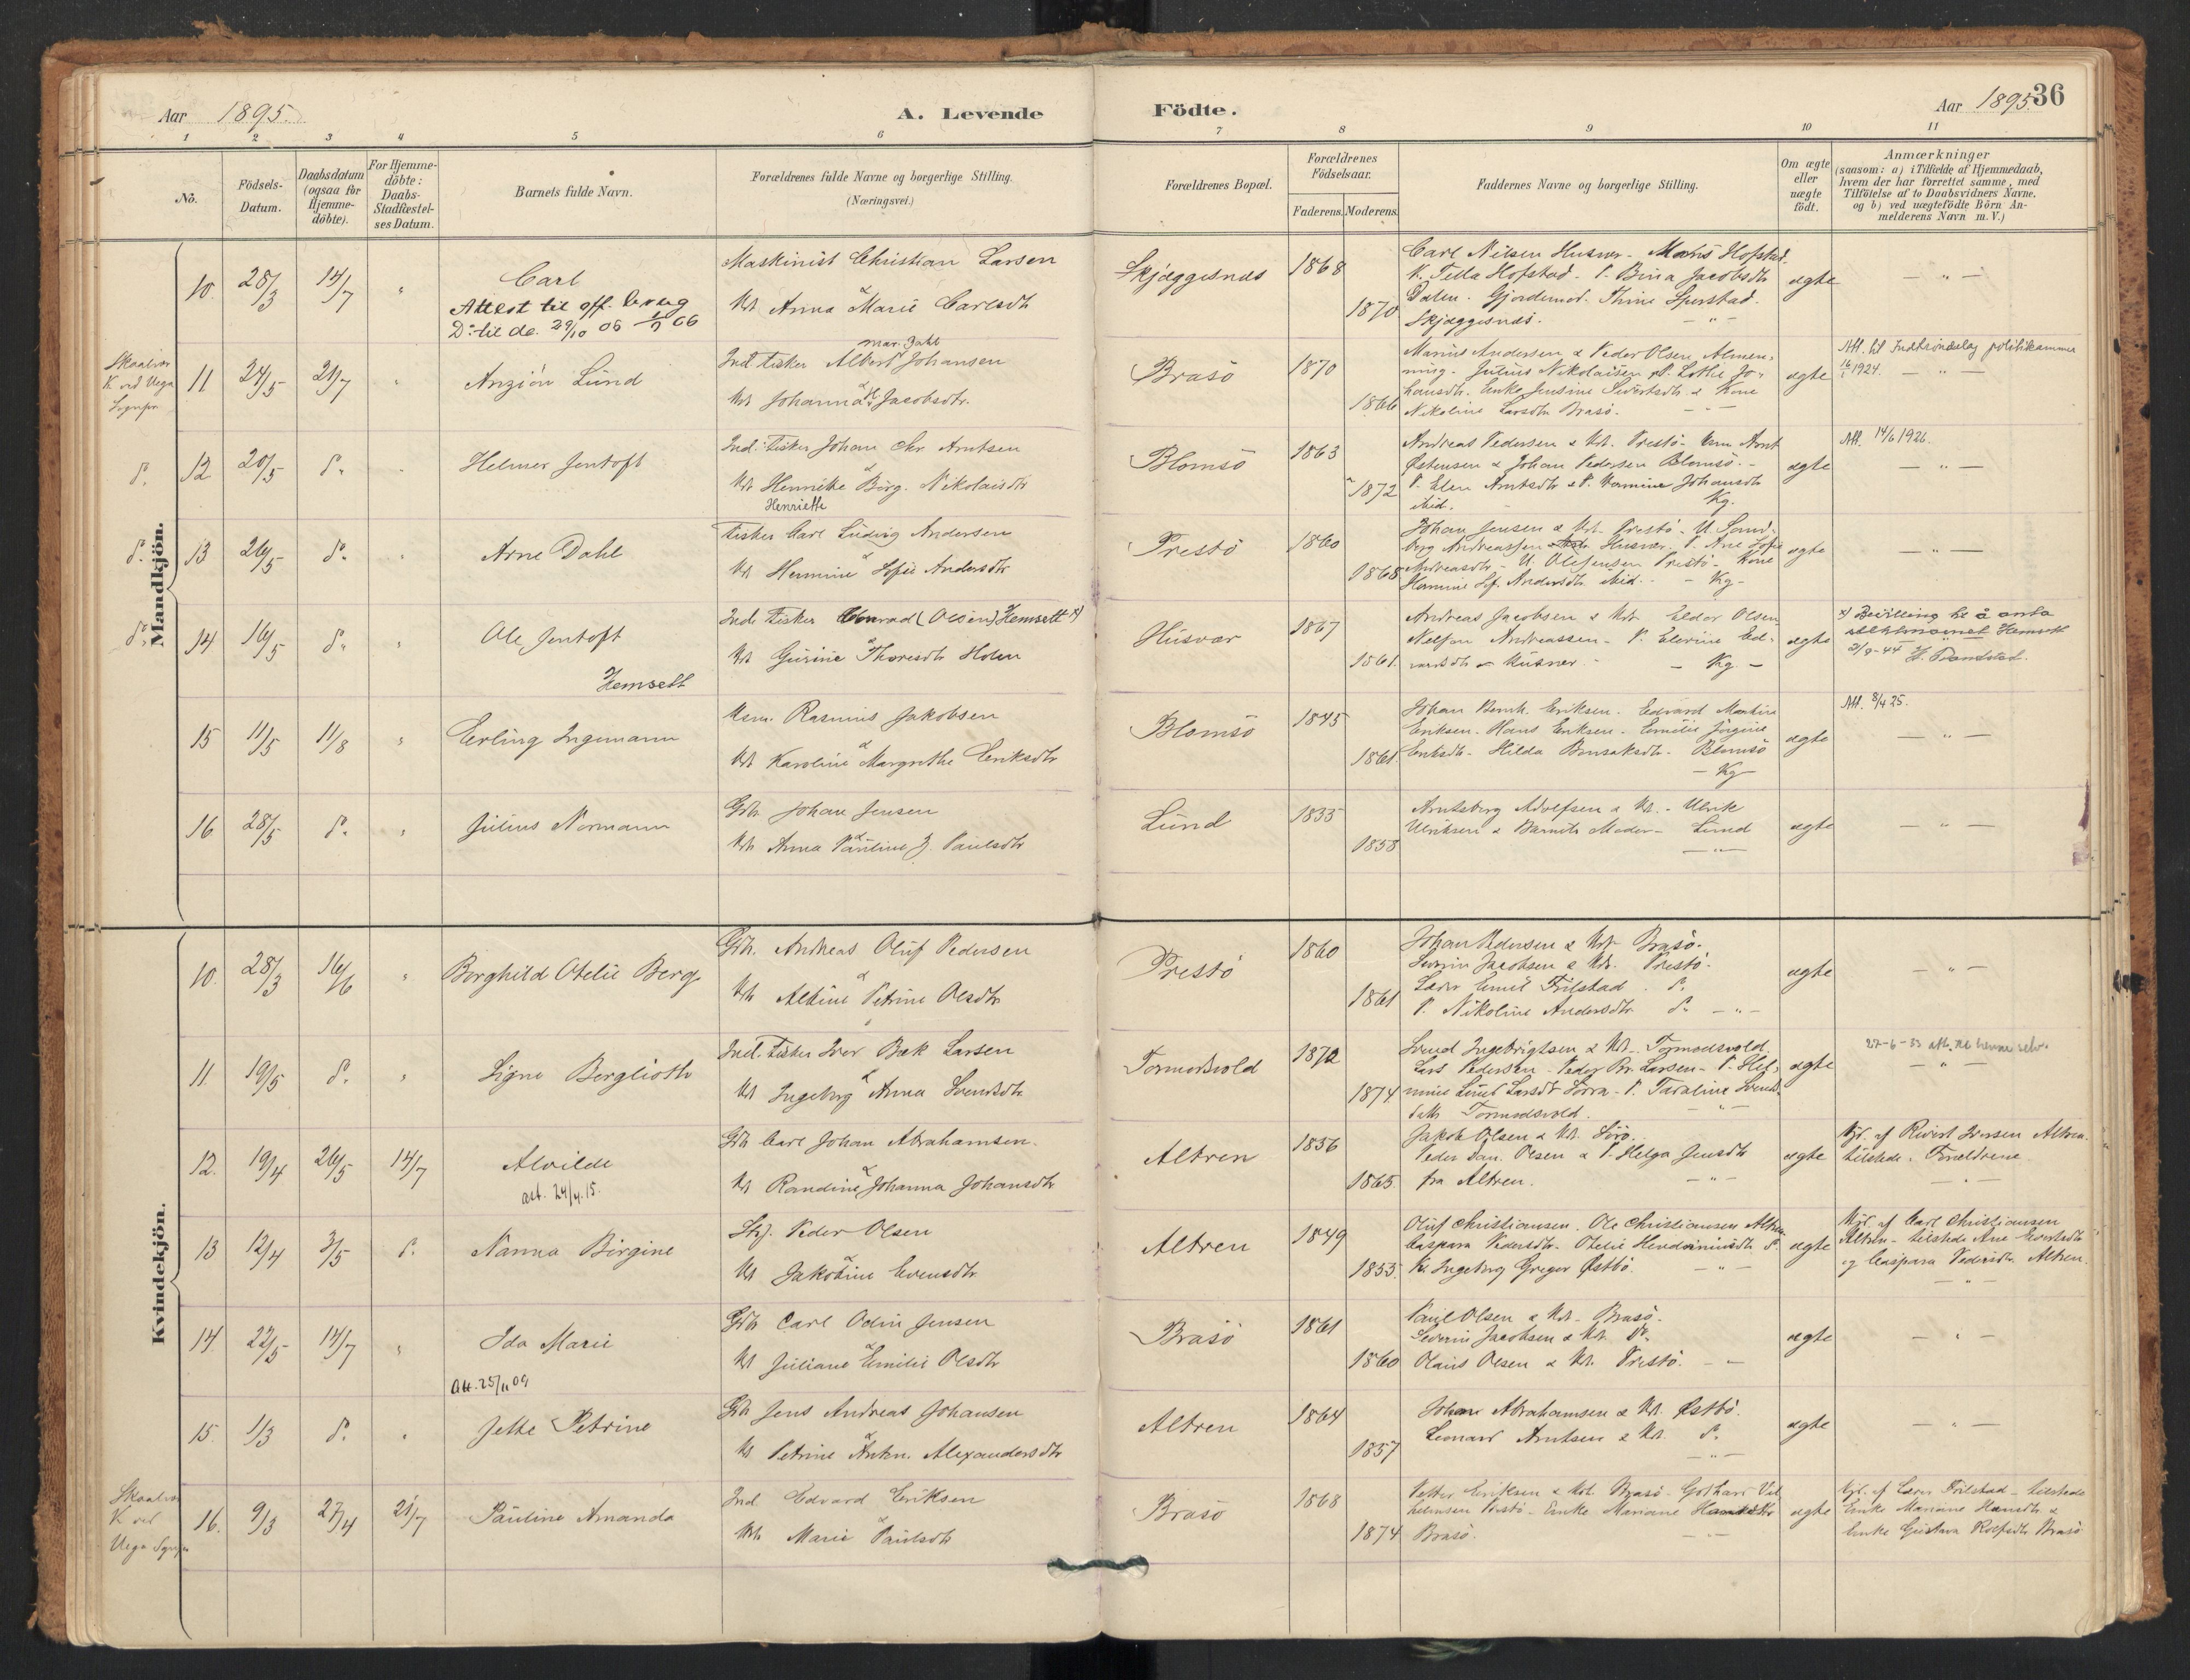 Aar 1895.
A. Levende
Födte.
Aar 1895
36
1 2 3 4 5 6 7 8 9 10 11
No.
Födsels-
Datum.
Daabsdatum
(ogsaa for
Hjemme-
döbte).
For Hjemme-
döbte:
Daabs-
Stadfæstel-
ses Datum.
Barnets fulde Navn.
Forældrenes fulde Navne og borgerlige Stilling.
(Næringsvei.)
Forældrenes Bopæl.
Forældrenes
Födselsaar.
Faderens. Moderens.
Faddernes Navne og borgerlige Stilling.
Om ægte
eller
uægte
födt.
Anmærkninger
(saasom: a) i Tilfælde af Hjemmedaab,
hvem der har forrettet samme, med
Tilföielse af to Daabsvidners Navne,
og b) ved uægtefödte Börn An-
melderens Navn m.V.)
Mandkjön.
10. 28/3 14/7 "
Carl
Attest til off. brug
Do til do. 29/10 06
Maskinist Christian Larsen
&
Kst Anna Marie Carlsdtr
Skjæggesnæs
1868
1870
Carl Nilsen Husvær - Hofstad.
K. Hofstad - P. Bina Jacobsdtr
Dalen. Gjordemod. Thine Sperstad.
Skjæggesnæs. - " -
ægte
- " -
K. ved Vega
Sognepr
11 24/5 21/7 "
Anzjön Lund
mar. Dahl
Ind. Fisker Albert Johansen
Kst Johanna Jacobsdtr.
Brasö
1870
1866
Marius Andersen & Peder Olsen Almen-
ning - Julius Nikolaisen P. Lothe Jo-
hansdtr. Enke Jensine Sivertsdtr & Kone
Nikoline Larsdtr Brasö. - " -
ægte
Att. til Indtröndelag politikammer
1924. - " -
12 20/5 Do "
Helmer Jentoft
Ind. Fisker Johan Chr Arntsen
&
Kst Henrikke Birg. Nikolaisdtr
Henriette
Blomsö
1863
1872
Andreas Pedersen & Kst. Prestö - Arnt
Östensen & Johan Pedersen Blomsö. -
P. Elen Arntsdtr & P. Hermine Johansdtr
ibid. Kg.
ægte
Att. 14/6 1926.
- " -
13 26/5 Do "
Arne Dahl
Fisker Carl Ludvig Andersen
&
Kst Hermine Sofie Andersdtr
Prestö
1860
1868
Johan Jensen & Kst. Prestö - U. Sand-
berg Andreassen Husvær. P. Ane Sofie
Andreasdtr - U. Ole Jensen Prestö - Kone
Hermine Sof. Andersdtr ibid. - Kg -
ægte
- " -
14 16/5 Do "
Ole Jentoft
Hemsett
Ind. Fisker Conrad (Olsen) Hemsett x)
&
Kst Gurine Thoresdtr Holen
Husvær
1867
1861.
Andreas Jacobsen & Kst Eldor Olsen
Andreassen - P. Elerine Ed-
vardsdtr Husvær. - Kg. -
ægte
x) Bevilling til å anta
slektsnavnet Hemsett
2/9-44
15 11/5 11/8 "
Erling Ingemann
Rasmus Jakobsen
&
Kst Karoline Margrethe Eriksdtr
Blomsö
1845
1861.
Johan Bernh. Eriksen. Edvard Martin
Eriksen. Hans Eriksen. Emilie Jörgine
Eriksdtr. Hilda Blomsö
- Kg -
ægte
Att. 8/4 25.
- " -
16 28/5 Do "
Julius Normann
Grb. Johan Jensen
&
Kst Anna Pauline J. Paulsdtr
Lund
1833
1858
Arntsberg Adolfsen & Kst. - Ulrik
Ulriksen & Barnets Moder - Lund
- " -
ægte
- " -
Kvindekjön.
10. 28/3 16/6 "
Borghild Otelie Berg
Grb. Andreas Oluf Pedersen
&
Kst Aldine Petrine Olsdtr
Prestö
1860
1861
Johan Pedersen & Kst Brasö.
Severin Jacobsen & Kst. Prestö.
Lærer Emil Frilstad. Do
P. Nikoline Andersdtr Do - " -
ægte
- " -
11. 19/5 Do "
Signe Berglioth
Ind. Fisker Iver Bek Larsen
&
Kst Ingeborg Anna Svendsdtr
Tormodsvold
1872
1874
Svend Ingebrigtsen & Kst. Tormodsvold.
Lars Pedersen. Peder Larsen - P. Her-
mine Larsdtr - P. Svends-
datr Tormodsvold. "
ægte
27-6-33 att. til henne selv.
- " -
12. 19/4 26/5 14/7
Alvilde
att. 24/4 15.
Grb Carl Johan Abrahamsen.
&
Kst Randine Johanna Johansdtr
Altren
1856
1865.
Jakob Olsen & Kst. Sörö.
Peder Dan. Olsen & P. Helga Jensdtr
fra Altren. - " -
ægte
Hjd. af Iversen Altren.
tilstede. Forældrene.
- " -
13 12/4 3/5 Do
Nanna Birgine
Peder Olsen
&
Kst Jakobine Evensdtr
Altren
1849
1853.
Oluf Christiansen. Ole Christiansen Altren
Caspara Pedersdtr. Otelie
K. Ingeborg Greger Östbö. - " -
ægte
Hjd. af Carl Christiansen
Altren - tilstede Ane
og Caspara Pedersdtr. Altren.
- " -
14. 22/5 14/7 "
Ida Marie
Att. 25/11 09
Grb Carl Odin Jensen
&
Kst Juliane Emilie Olsdtr
Brasö
1861
1860
Paul Olsen & Kst. Brasö.
Severin Jacobsen & Kst. Do
Olaus Olsen & Kst. Prestö. - " -
ægte
- " -
15. 1/3 Do "
Jette Petrine
Grb Jens Andreas Johansen
&
Kst Petrine Antn. Alexandersdtr
Altren
1864
1857
Johan Abrahamsen & Kst. Östbö.
Leonard Arntsen & Kst. Do
- " -
ægte
- " -
K. ved
Vega
16. 9/3 27/4 21/7
Pauline Amanda
Ind Edvard Eriksen
&
Kst Marie Paulsdtr
Brasö
1868
1874
Petter Eriksen & Kst. Brasö - Gothard Vil-
helmsen Prestö - Enke Mariane
Brasö. - " -
ægte
Hjd. af Lærer Frilstad - tilstede
Enke Mariane Hansdtr &
Enke Gustava Brasö